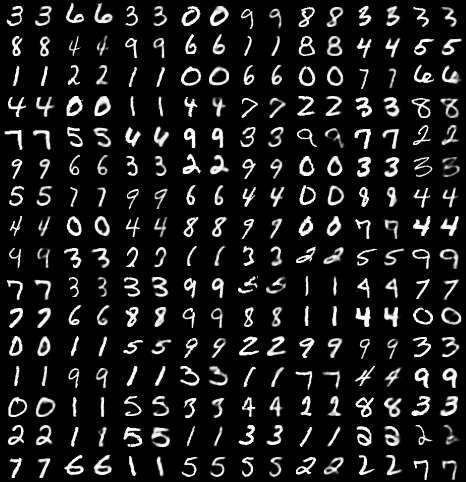 3 3 6 6 3 3 0 0 9 9 8 8 3 3 3 3
8 8 4 4 9 9 6 6 1 1 8 8 4 4 5 5
1 1 2 2 1 1 0 0 6 6 0 0 7 7 6 6
4 4 0 0 1 1 4 4 7 7 2 2 3 3 8 8
7 7 5 5 4 4 9 9 3 3 9 9 7 7 2 2
9 9 6 6 3 3 2 2 9 9 0 0 3 3 3 3
5 5 7 7 9 9 6 6 4 4 0 0 8 8 4 4
4 4 0 0 4 4 8 8 9 9 0 0 7 7 4 4
9 9 3 3 2 2 1 1 3 3 2 2 5 5 9 9
7 7 3 3 3 3 9 9 5 5 1 1 4 4 7 7
7 7 6 6 8 8 9 9 8 8 1 1 4 4 0 0
0 0 1 1 5 5 9 9 2 2 9 9 9 9 3 3
1 1 9 9 1 1 3 3 1 1 7 7 4 4 9 9
0 0 1 1 5 5 3 3 4 4 2 2 8 8 3 3
2 2 1 1 5 5 1 1 3 3 1 1 2 2 2 2
7 7 6 6 1 1 5 5 5 5 2 2 2 2 7 7